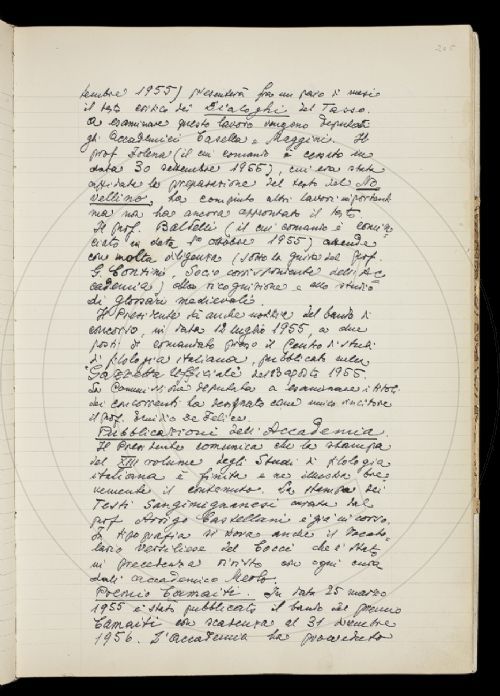 205
tembre 1955) presenterà fra un paio di mesi
il testo critico dei Dialoghi del Tasso.
A esaminare questo lavoro vengono deputati
gli Accademici Casella e Maggini. Il
prof. Folena (il cui comando è cessato in
data 30 settembre 1955), cui era stata
affidata la preparazione del testo del No
vellino, ha compiuto altri lavori importanti
ma non ha ancora approntato il testo.
Il prof. Baldelli (il cui comando è comin
ciato in data 1º ottobre 1955) attende
con molta diligenza (sotto la guida del prof.
G. Contini, Socio corrispondente dell'Ac
cademia) alla ricognizione e allo studio
di glossari medievali.
Il Presidente dà anche notizia del bando di
concorso, in data 12 luglio 1955, a due
posti di comandato presso il Centro di studi
di filologia italiana, pubblicato nella
Gazzetta Ufficiale del 3 agosto 1955.
La Commissione deputata a esaminare i titoli
dei concorrenti ha designato come unico vincitore
il prof. Emidio De Felice.
Pubblicazioni dell'Accademia.
Il Presidente comunica che la stampa
del XIII volume degli Studi di filologia
italiana è finita e ne illustra bre
vemente il contenuto. La stampa dei
Testi Sangimignanesi curata dal
prof. Arrigo Castellani è già in corso.
In tipografia si trova anche il Vocabo
lario Versiliese del Cocci che è stato
in precedenza rivisto con ogni cura
dall'accademico Merlo.
Premio Camaiti. In data 25 marzo
1955 è stato pubblicato il bando del premio
Camaiti con scadenza al 31 dicembre
1956. L'Accademia ha provveduto